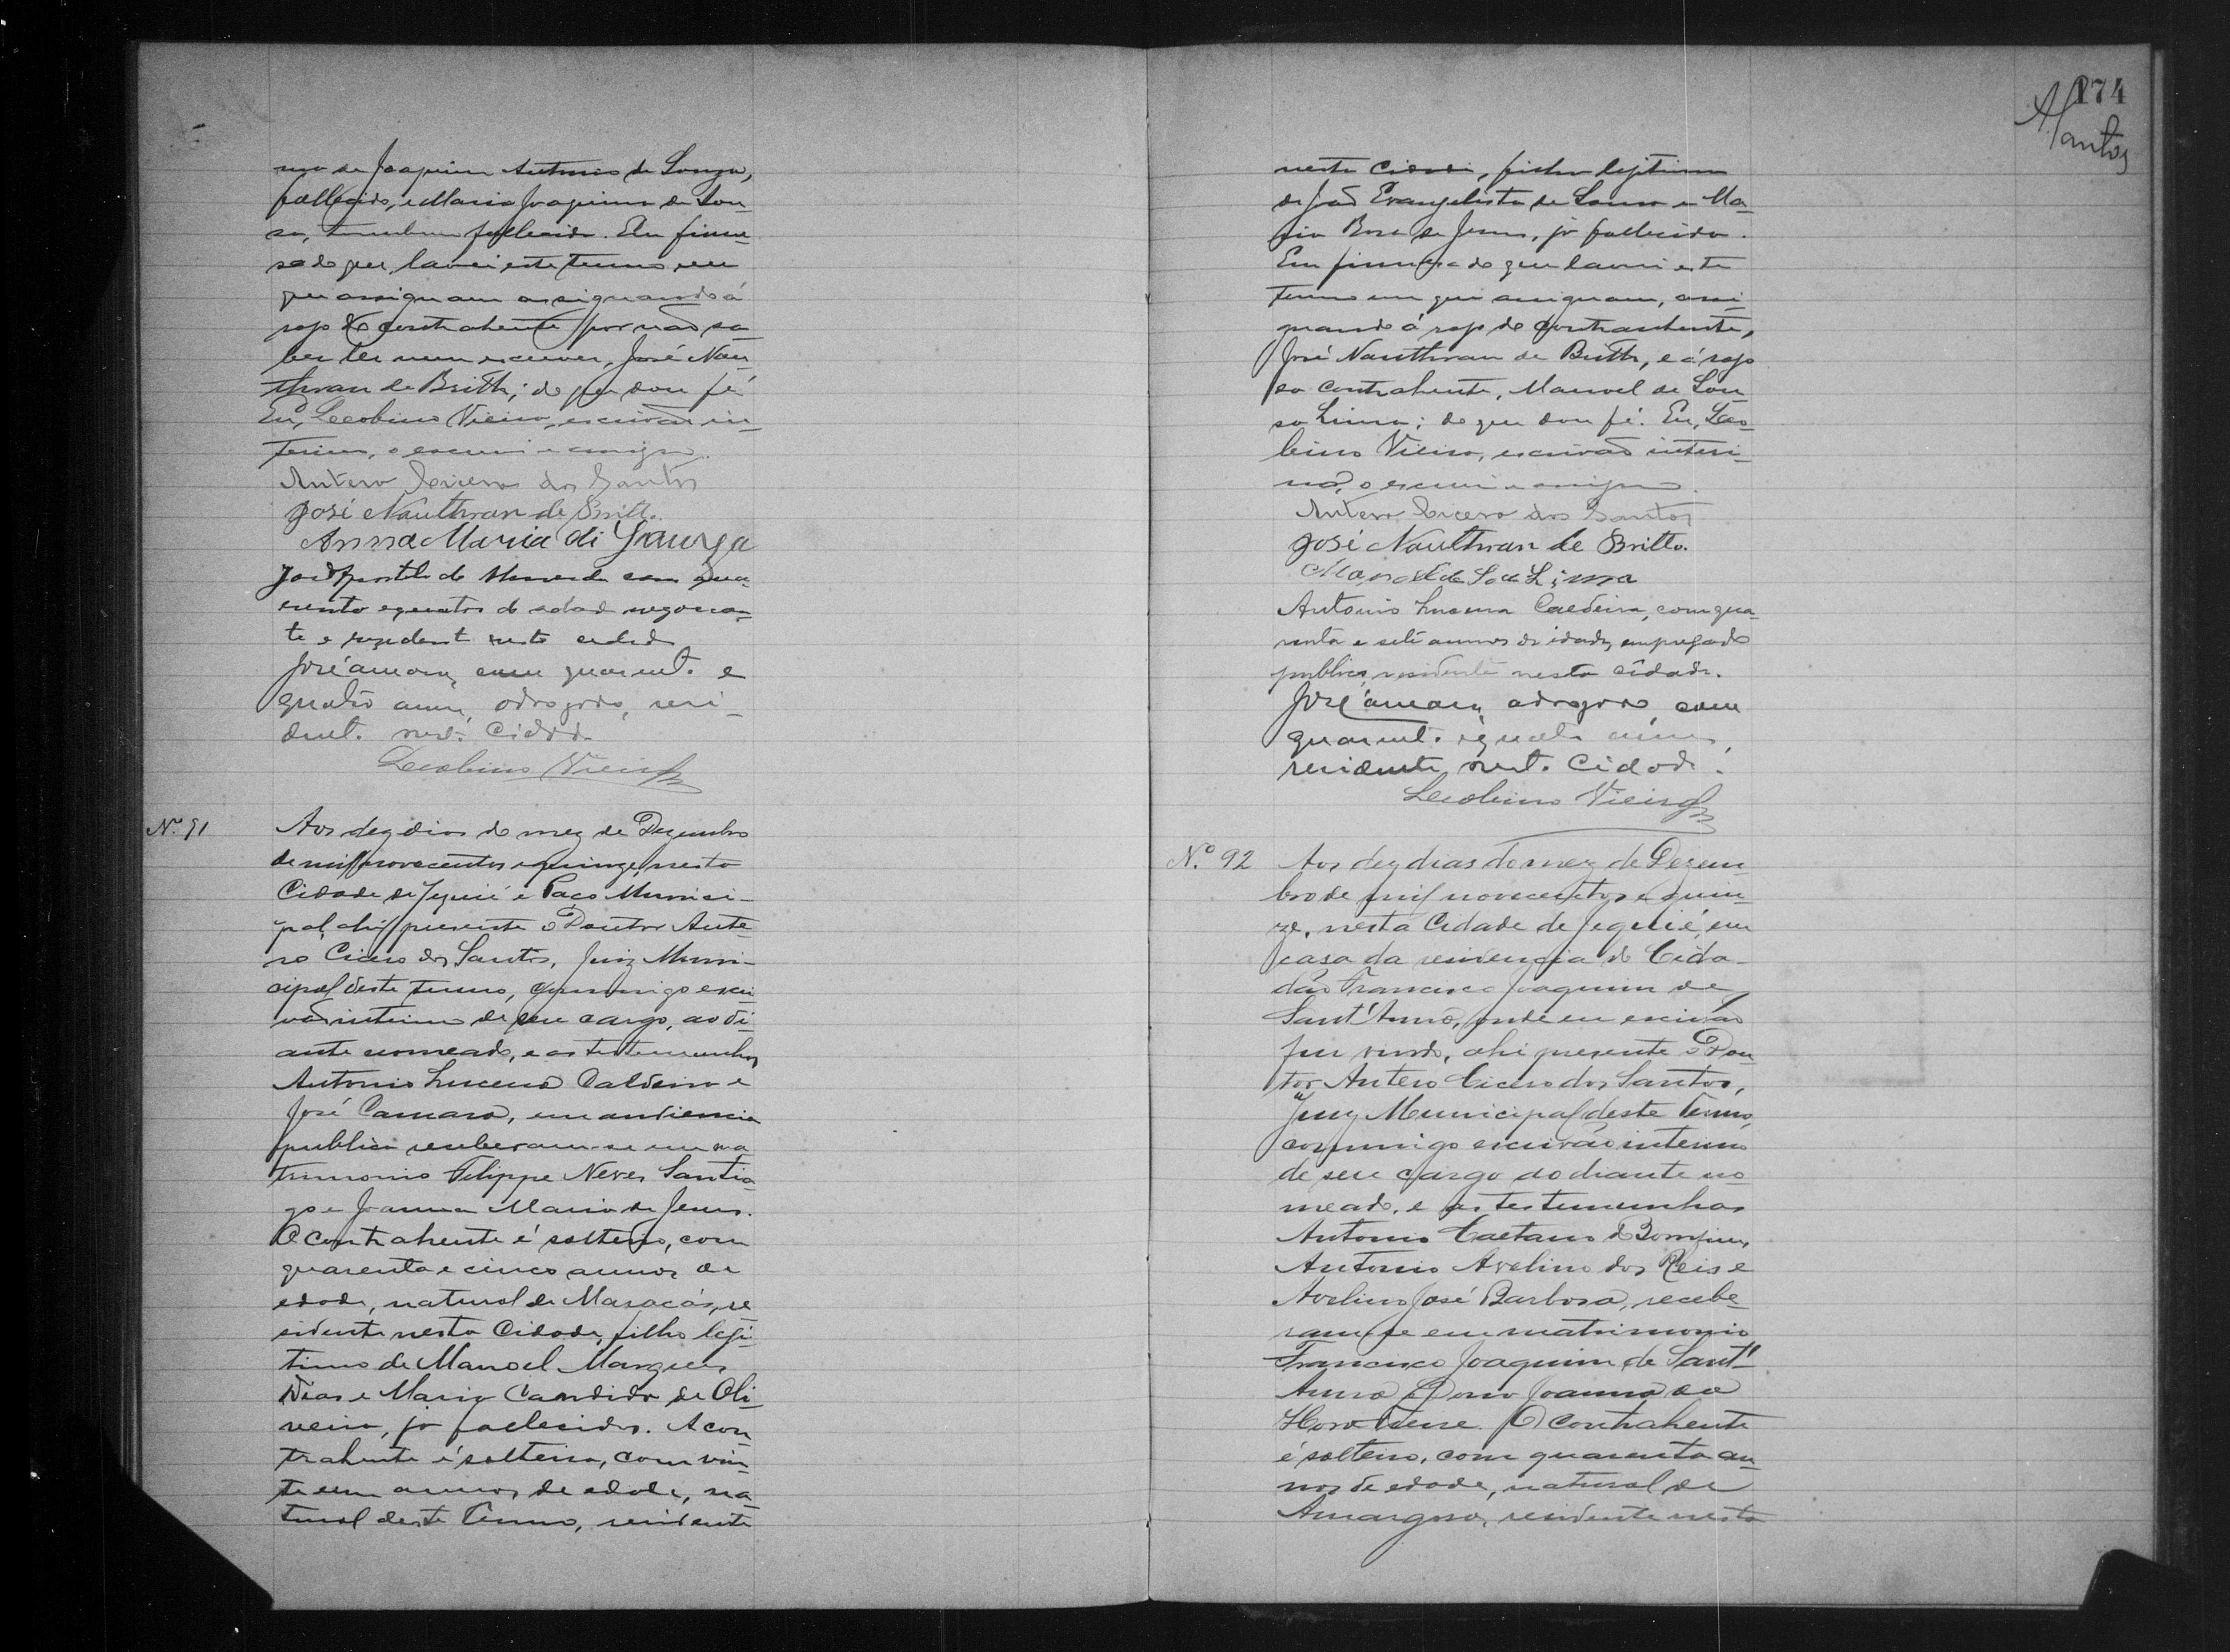 de Joaquim Antonio de Souza,
fallecido, e Maria Joaquina de Sou-
sa, tambem fallecida. Em firme-
sa do que lavrei este termo em
que assignam assignando á
rogo do contrahente por não sa-
ber ler nem escrever, José Nau-
thwan de Britto; do que dou fé
Eu, Leobino Vieira, escrivão in-
terino, o escrevi e assigno.
Antero Cicero dos Santos
José Nauthwan de Britto.
Anna Maria di
com qua-
renta e quatro de edade negocian-
te e rezident nesta cidad
José Camara, com quarent. e
quatro annos, advogado, resi-
dent. nest. Cidade
Leobino Vieira
Nº 91
Aos dez dias do mez de Dezembro
de mil novecentos e quinze, nesta
Cidade de Jequié e Paço Munici-
pal, ahi presente o Doutor Ante-
ro Cicero dos Santos, Juiz Muni-
cipal deste termo, commigo escri-
vão interino de seu cargo, ao di-
ante nomeado, e as testemunhas
Antonio Lucena Caldeira e
José Camara, em audiencia
publica receberam-se em ma-
trimonio Filippe Neves Santia-
go e Joanna Maria de Jesus.
O contrahente é solteiro, com
quarenta e cinco annos de
edade, natural de Maracás, re-
sidente nesta Cidade, filho legi-
timo de Manoel Marques
Dias e Maria Candida de Oli-
veira, já fallecidos. A con-
trahente é solteira, com vin-
te um annos de edade, na-
tural deste Termo, residente
174
ASantos
nesta cidade, filha legitima
de João Evangelista de Souza e Ma-
ria Rosa de Jesus, já fallecida.
Em firmesa do que lavrei este
termo em que assignam, assi-
gnando á rogo do contrahente,
José Nauthwan de Britto, e á rogo
da contrahente, Manoel de Sou-
sa Lima; do que dou fé. Eu, Leo-
bino Vieira, escrivão interi-
no, o escrevi e assigno.
Antero Cicero dos Santos
José Nauthwan de Britto.
Manoel de Sousa Lima
Antonio Lucena Caldeira, com qua-
renta e sete annos de idade, empregado
publico, residente nesta cidade.
José Camara, advogado, com
quarent. e quatro annos,
residente nest. Cidade.
Leobino Vieira
Nº 92
Aos dez dias do mez de Dezem-
bro de mil novecentos e quin-
ze, nesta Cidade de Jequié, em
casa da residencia do Cida-
dão Francisco Joaquim de
Sant'Anna, onde eu escrivão
fui vindo, ahi presente o Dou-
tor Antero Cicero dos Santos,
Juiz Municipal deste Termo,
commigo escrivão interino
de seu cargo ao diante no-
meado, e as testemunhas
Antonio Caetano do Bomfim,
Antonio Avelino dos Reis e
Avelino José Barbosa, recebe-
ram-se em matrimonio
Francisco Joaquim de Sant'
Anna e Dona Joanna
O contrahente
é solteiro, com quarenta an-
nos de edade, natural de
Amargosa, residente nesta